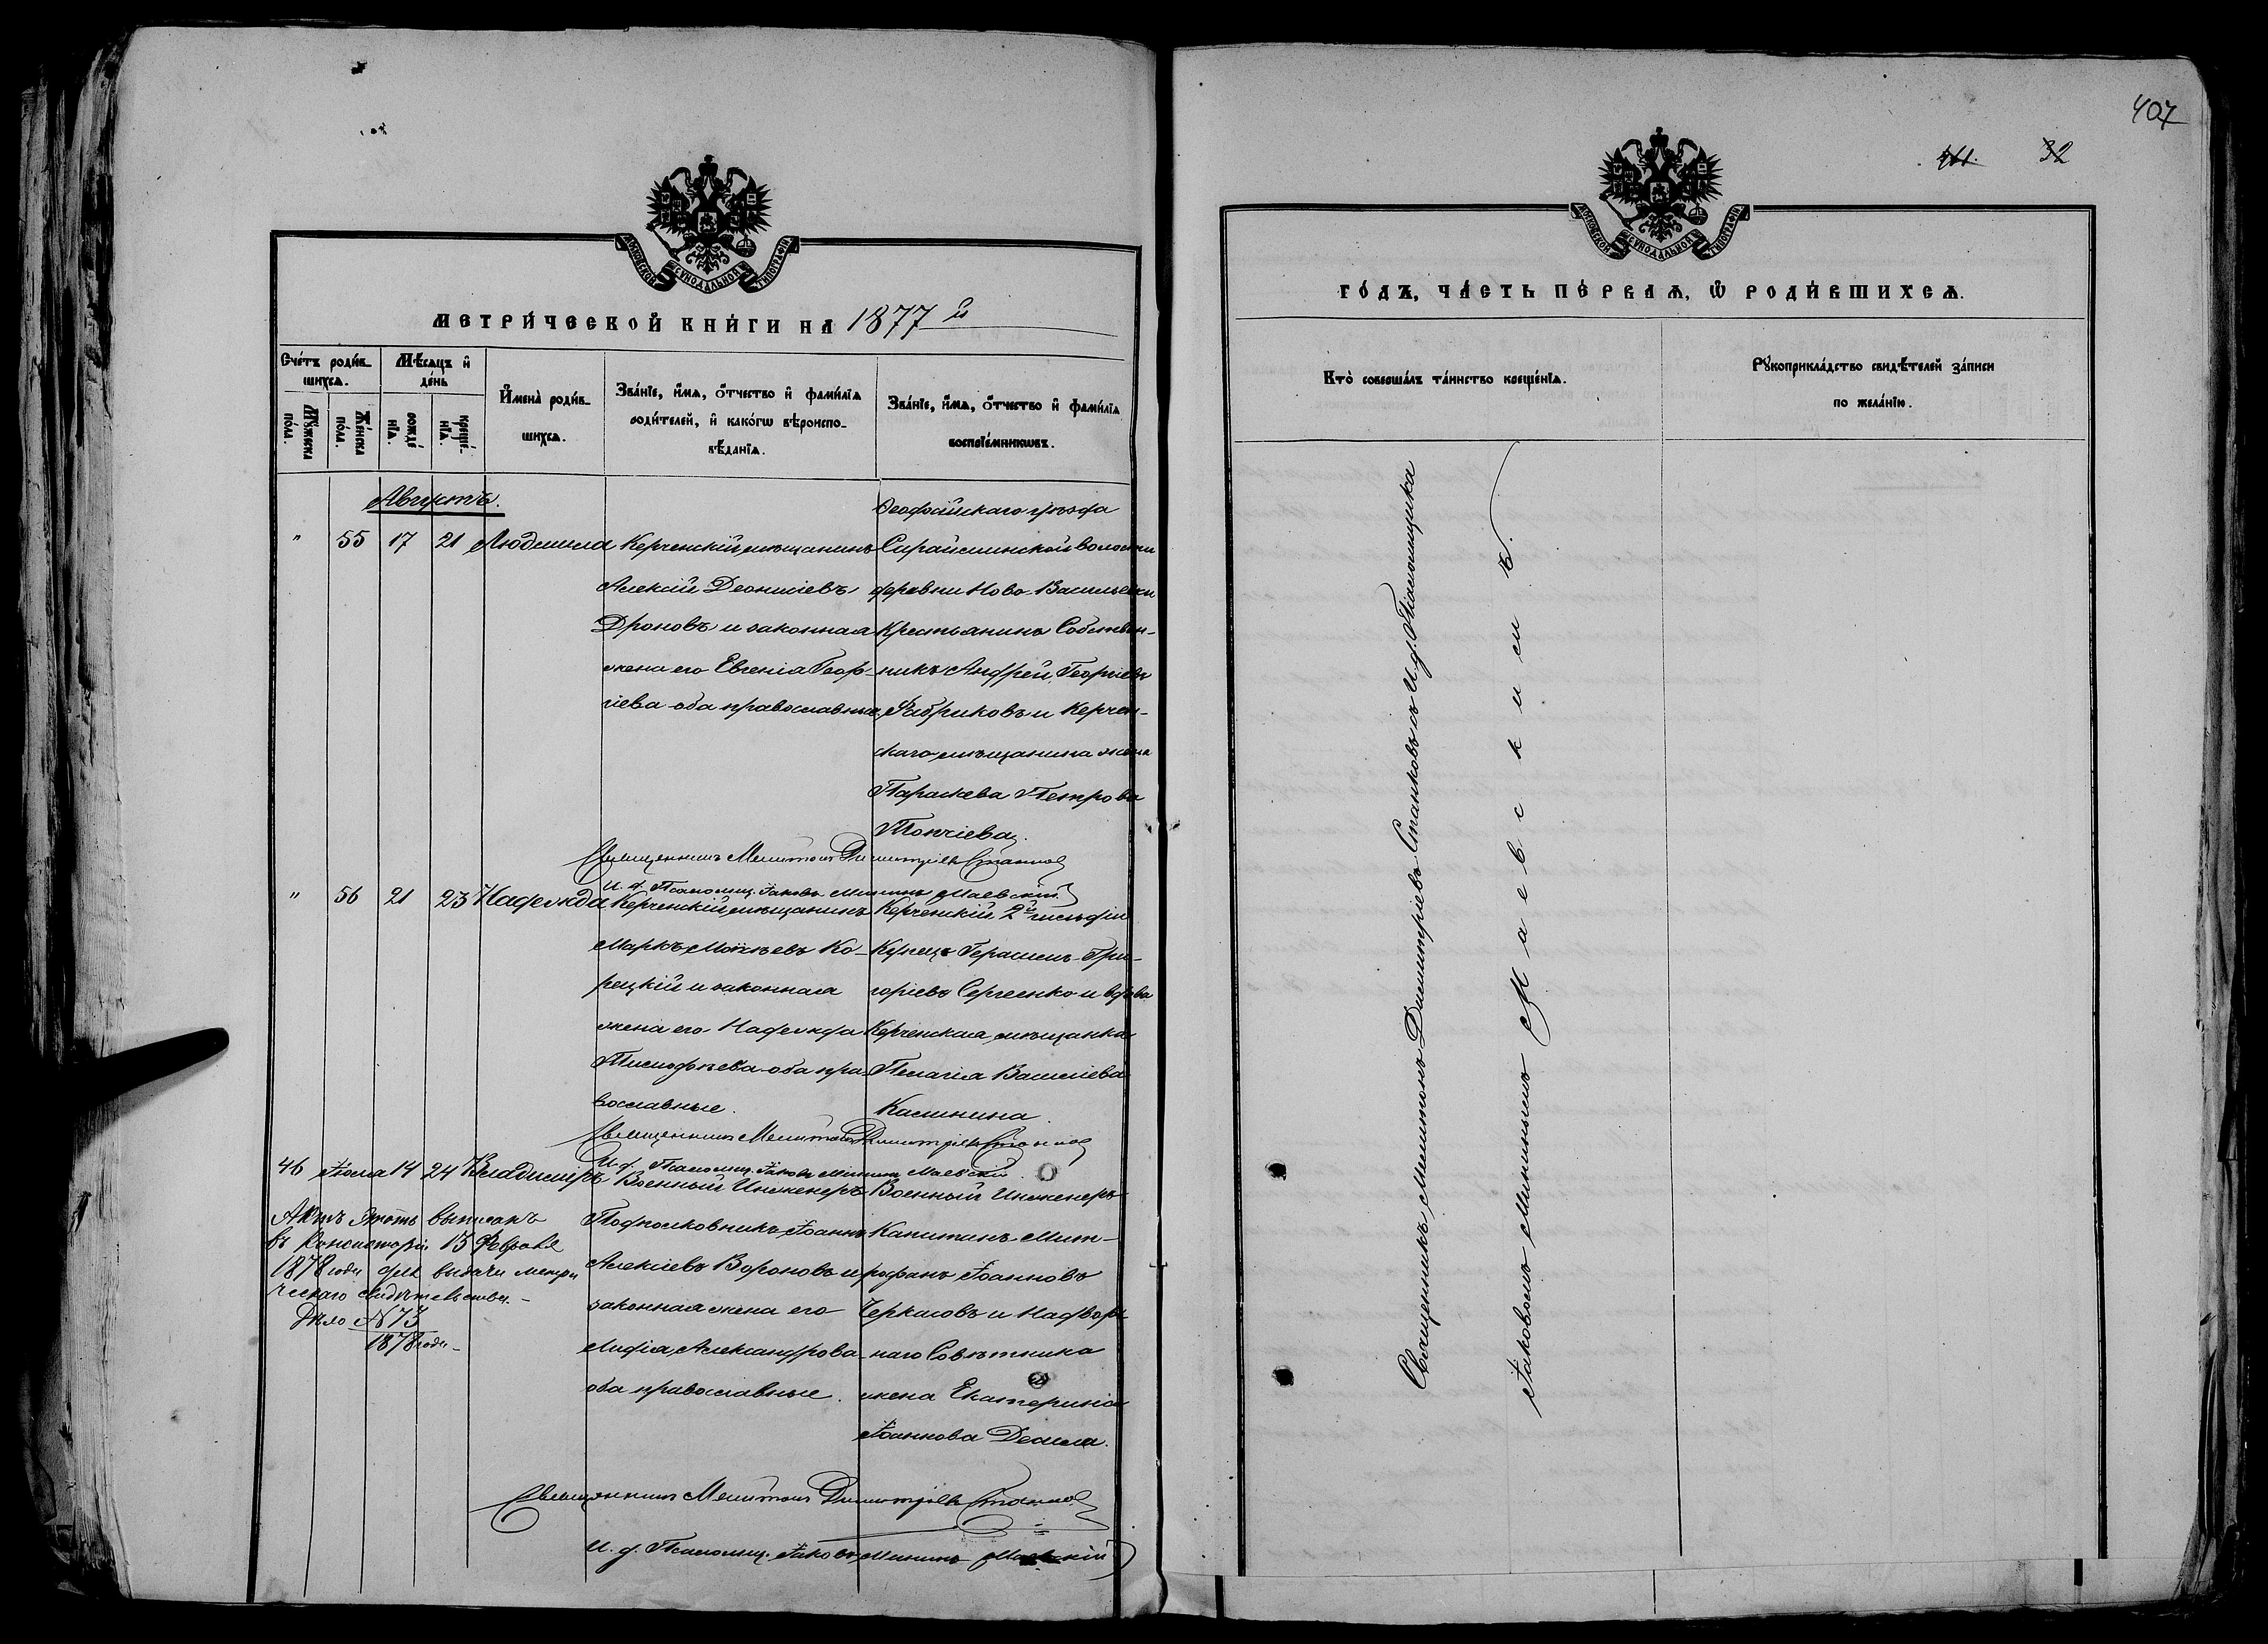 407
32
МОСКОВСКОЙ СѴНОДАЛЬНОЙ ТИПОГРАФІИ
МЕТРИ́ЧЕСКОЙ КНИ́ГИ НА 1877й
Сче́тъ роди́в-
шихсѧ.
Мꙋ́жеска
по́ла.
Же́нска
по́ла.
Мѣ́сѧцъ и҆
де́нь
рожде́
нїѧ.
креще́-
нїѧ.
И҆мена̀ роди́в-
шихсѧ.
Зва́нїе, и҆́мѧ, ѻ҆́тчество и҆ фами́лїѧ
роди́телей, и҆ како́гѡ вѣроиспо-
вѣ́данїѧ.
Зва́нїе, и҆́мѧ, ѻ҆́тчество и҆ фами́лїѧ
воспрїе́мникѡвъ.
Августъ.
" 55 17 21 Людмила
Керченскій мѣщанинъ
Алексій Деонисіевъ
Дроновъ и законная
жена его Евгенія Геор-
гіева оба православные
Ѳеодосійскаго уѣзда
волости
деревни Ново-Васильевки
Крестьянинъ Собствен-
никъ Андрей Георгіевъ
Фабриковъ и Керчен-
скаго мѣщанина жена
Параскева Петрова
Топчіева.
Священникъ Мелитонъ Димитріевъ Станковъ
И. д. Псаломщ. Іаковъ Мининъ Маевскій
" 56 21 23 Надежда
Керченскій мѣщанинъ
Маркъ Моѵсѣевъ Ко-
рецкій и законная
жена его Надежда
Тимоѳѣева оба пра-
вославные.
Керченскій 2й гильдіи
Купецъ Герасимъ Гри-
горіевъ Сергеенко и вдова
Керченская мѣщанка
Пелагія Василіева
Калинина.
Священникъ Мелитонъ Димитріевъ Станковъ
И. д. Псаломщ. Іаковъ Мининъ Маевскій
46 Іюля 14 24 Владиміръ
Военный Инженеръ
Подполковникъ Іоаннъ
Алексіевъ Вороновъ и
законная жена его
Лидія Александрова
оба православные.
Военный Инженеръ
Капитанъ Мит-
рофанъ Іоанновъ
Черкасовъ и Надвор-
наго Совѣтника
жена Екатерина
Іоаннова
Актъ этотъ выписанъ
въ Консисторіи 13 Февраля
1878 года для выдачи метри
ческаго свидѣтельства.-
Дѣло № 73
1878 года.-
Священникъ Мелитонъ Димитріевъ Станковъ
И. д. Псаломщ. Іаковъ Мининъ Маевскій
МОСКОВСКОЙ СѴНОДАЛЬНОЙ ТИПОГРАФІИ
ГО́ДЪ, ЧА́СТЬ ПЕ́РВАѦ, Ѡ҆ РОДИ́ВШИХСѦ.
Кто̀ соверша́лъ та́инство креще́нїѧ.
Рꙋкоприкла́дство свидѣ́телей за́писи
по жела́нїю.
Священникъ Мелитонъ Димитріевъ Станковъ съ И. д. Псаломщика
Іаковомъ Мининымъ Маевскимъ.